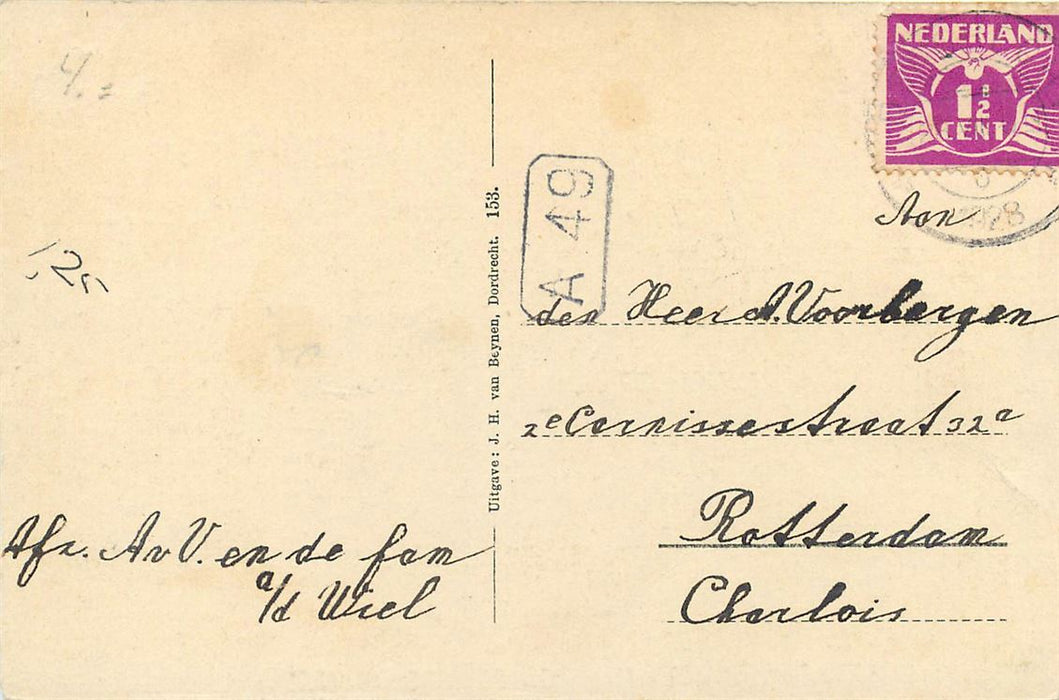 4.=
NEDERLAND
1½
CENT
1928
A 49
Aan
den Heer A. Voorbergen
2e Carnissestraat 32a
Rotterdam
Charlois
1,25
Uitgave: J. H. van Beynen, Dordrecht. 153.
Afz. A v V. en de fam
a/d Wiel